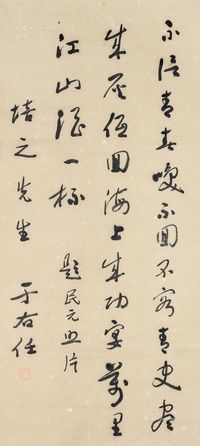 不信青春喚不回不容青史盡
成灰低回海上成功宴萬里
江山酒一杯 題民元照片
培之先生 于右任